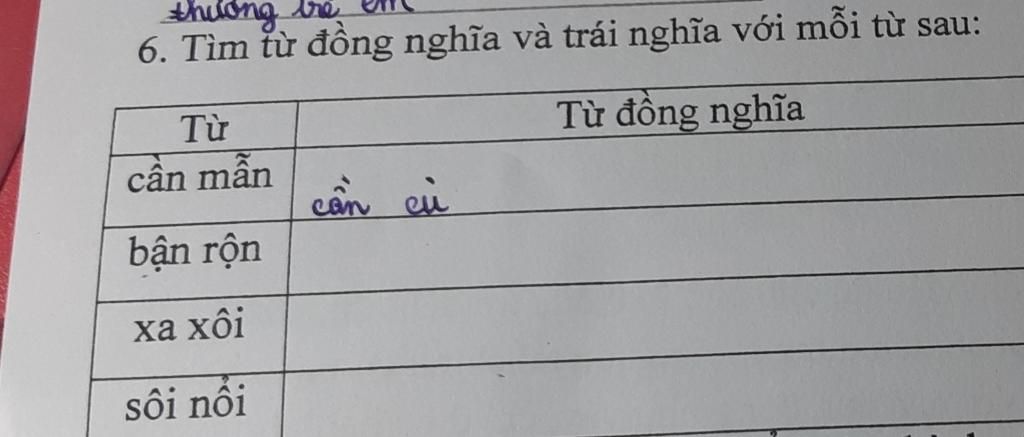 thương trẻ em
6. Tìm từ đồng nghĩa và trái nghĩa với mỗi từ sau:
Từ
Từ đồng nghĩa
cần mẫn
cần cù
bận rộn
xa xôi
sôi nổi